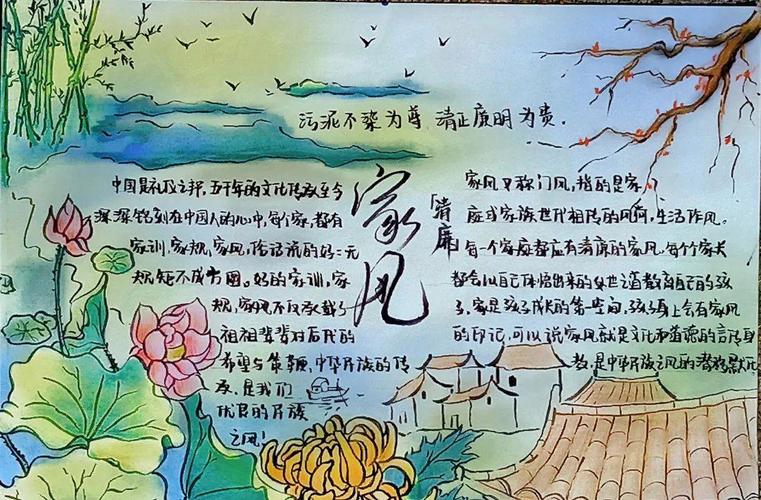 污泥不染为尊 清正廉明为贵.
中国是礼仪之邦，五千年的文化传承至今
深深铭刻在中国人的心中，每个家，都有
家训，家规，家风，俗话说的好：无
规矩不成方圆。好的家训，家
规，家风不仅承载了
祖祖辈辈对后代的
希望与策鞭，中华民族的传
承，是我们
优良的民族
之风！
家风
「清廉
家风又称门风，指的是家
庭或家族世代相传的风尚，生活作风。
每一个家庭都应有清廉的家风，每个家长
都会以自己体悟出来的处世之道教育自己的孩
子，家是孩子成长的第一空间，孩子身上会有家风
的印记，可以说家风就是文化和道德的言传身
教，是中华民族之风的潜移默化